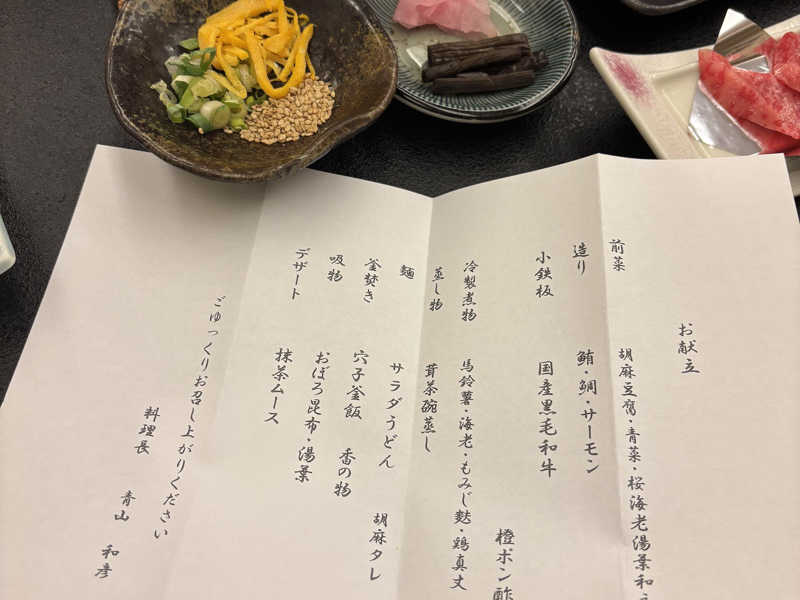 お献立
前菜 胡麻豆腐・青菜・桜海老湯葉和
造り 鮪・鯛・サーモン
小鉄板 国産黒毛和牛
橙ポン酢
冷製煮物 馬鈴薯・海老・もみじ麩・鶏真丈
蒸し物 茸茶碗蒸し
麺 サラダうどん 胡麻タレ
釜焚き 穴子釜飯 香の物
吸物 おぼろ昆布・湯葉
デザート 抹茶ムース
ごゆっくりお召し上がりください
料理長 青山 和彦